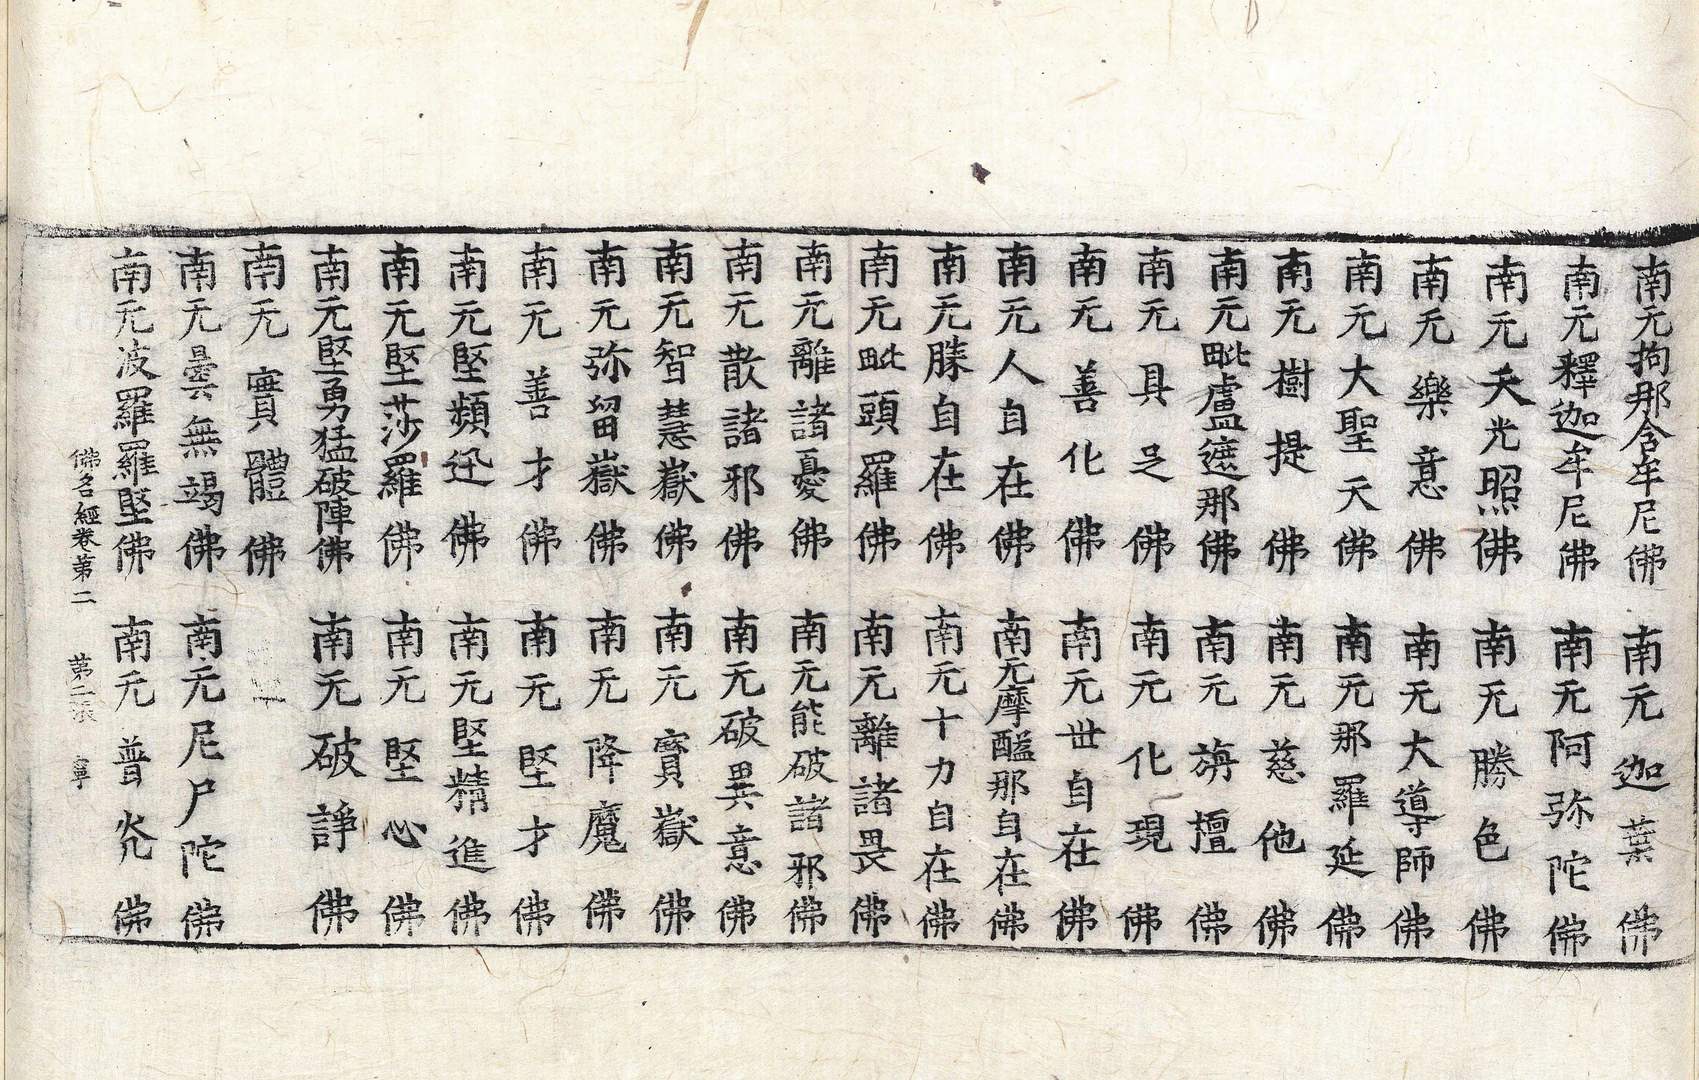 南无拘那含牟尼佛 南无迦葉佛
南无釋迦牟尼佛 南无阿弥陀佛
南无天光照佛 南无勝色佛
南无樂意佛 南无大導師佛
南无大聖天佛 南无那羅延佛
南无樹提佛 南无慈他佛
南无毗盧遮那佛 南无旃檀佛
南无具足佛 南无化現佛
南无善化佛 南无世自在佛
南无人自在佛 南无摩醯那自在佛
南无勝自在佛 南无十力自在佛
南无毗頭羅佛 南无離諸畏佛
南无離諸憂佛 南无能破諸邪佛
南无散諸邪佛 南无破異意佛
南无智慧嶽佛 南无寶嶽佛
南无弥留嶽佛 南无降魔佛
南无善才佛 南无堅才佛
南无堅頻迅佛 南无堅精進佛
南无堅莎羅佛 南无堅心佛
南无堅勇猛破陣佛 南无破諍佛
南无實體佛
南无曇無竭佛 南无尼尸陀佛
南无波羅羅堅佛 南无普光佛
佛名經卷第二 第二張